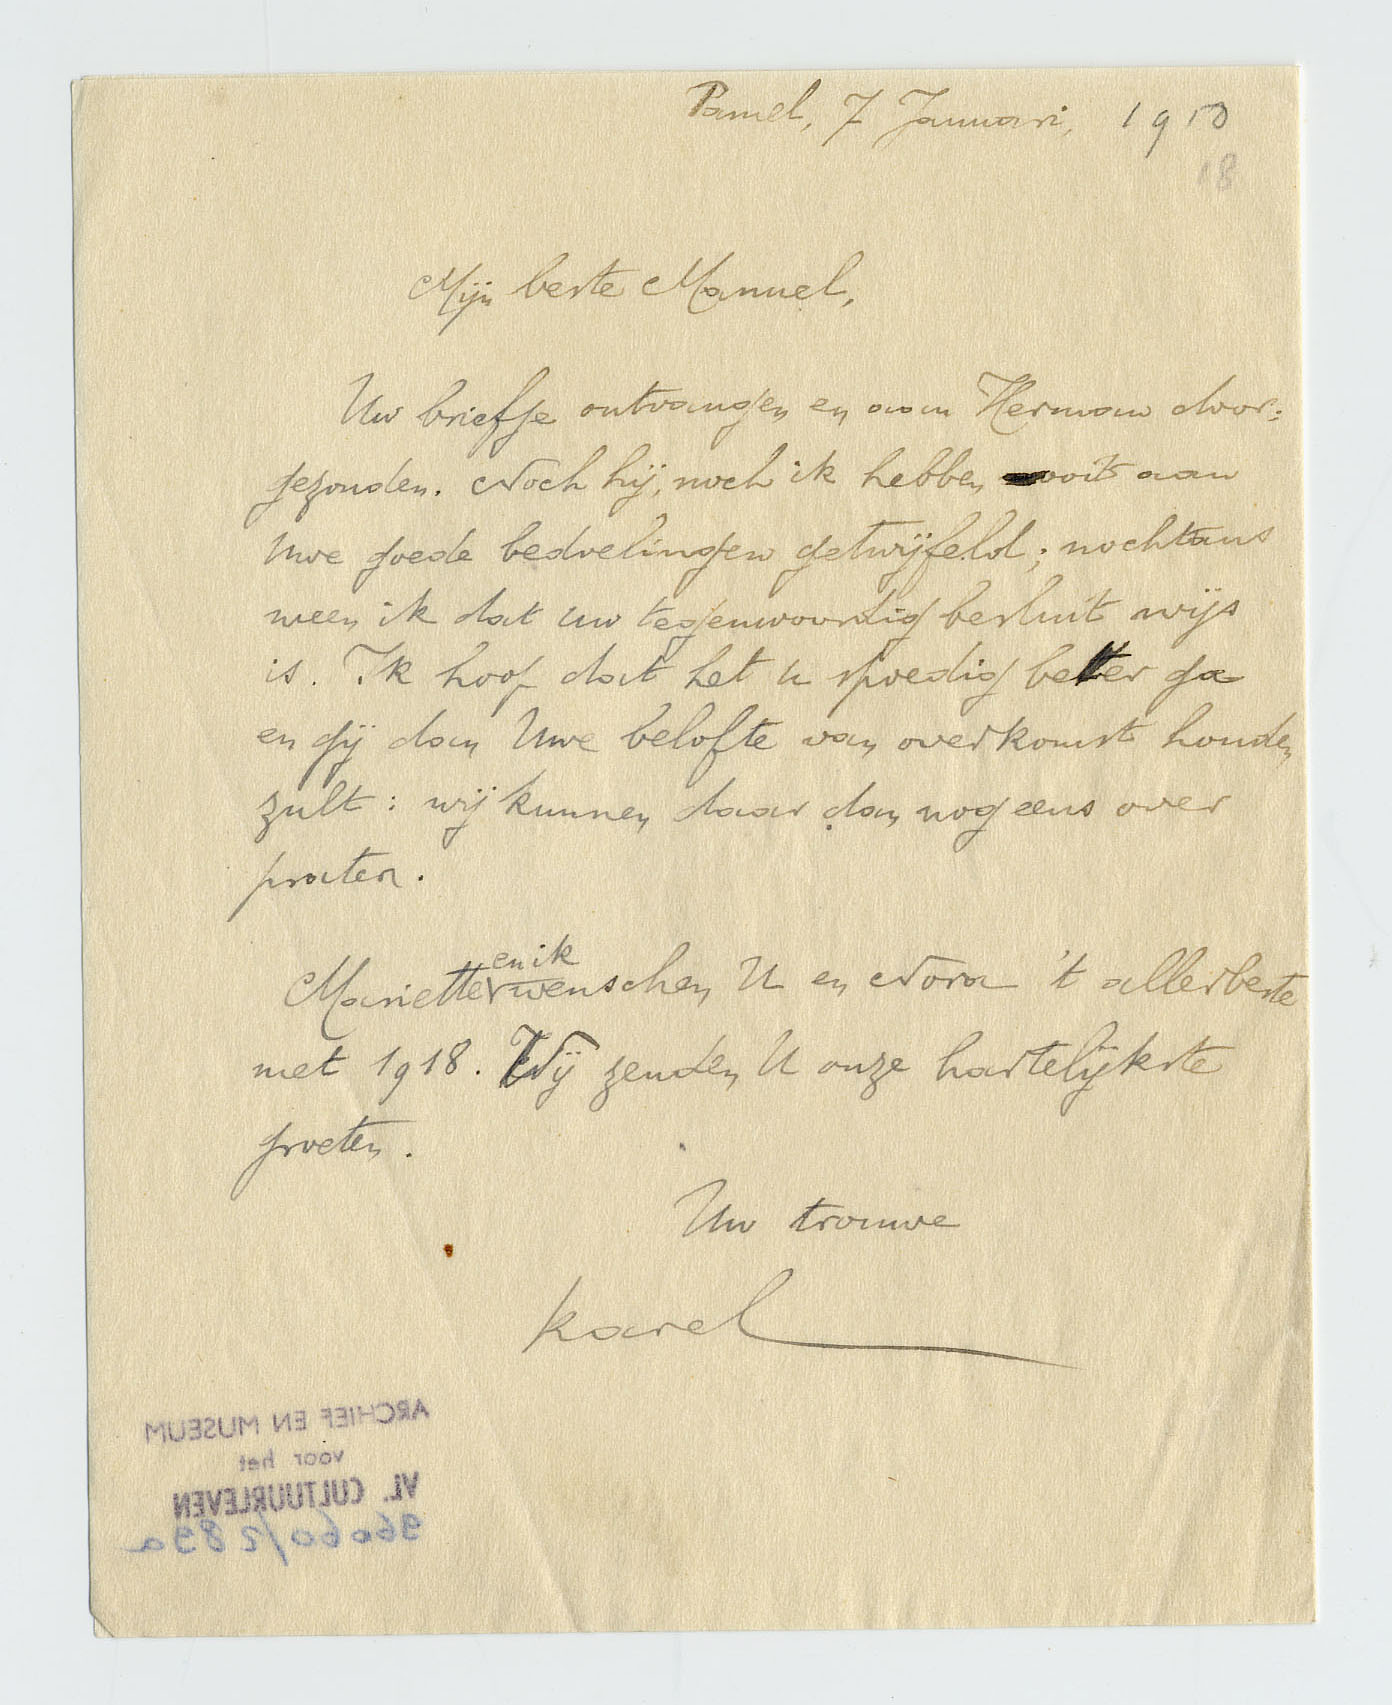 Pamel, 7 Januari, 1910
18
Mijn beste Manuel,
Uw briefje ontvangen en aan Herman door-
gezonden. Noch hij, noch ik hebben ooit aan
Uwe goede bedoelingen getwijfeld; nochtans
meen ik dat Uw tegenwoordig besluit wijs
is. Ik hoop dat het u spoedig beter ga
en gij dan Uwe belofte van overkomst houden
zult: wij kunnen daar dan nog eens over
praten.
en ik
Mariette wenschen U en Nora 't allerbeste
met 1918. Wij zenden U onze hartelijkste
groeten.
Uw trouwe
Karel
ARCHIEF EN MUSEUM
voor het
VL. CULTUURLEVEN
96060/289a